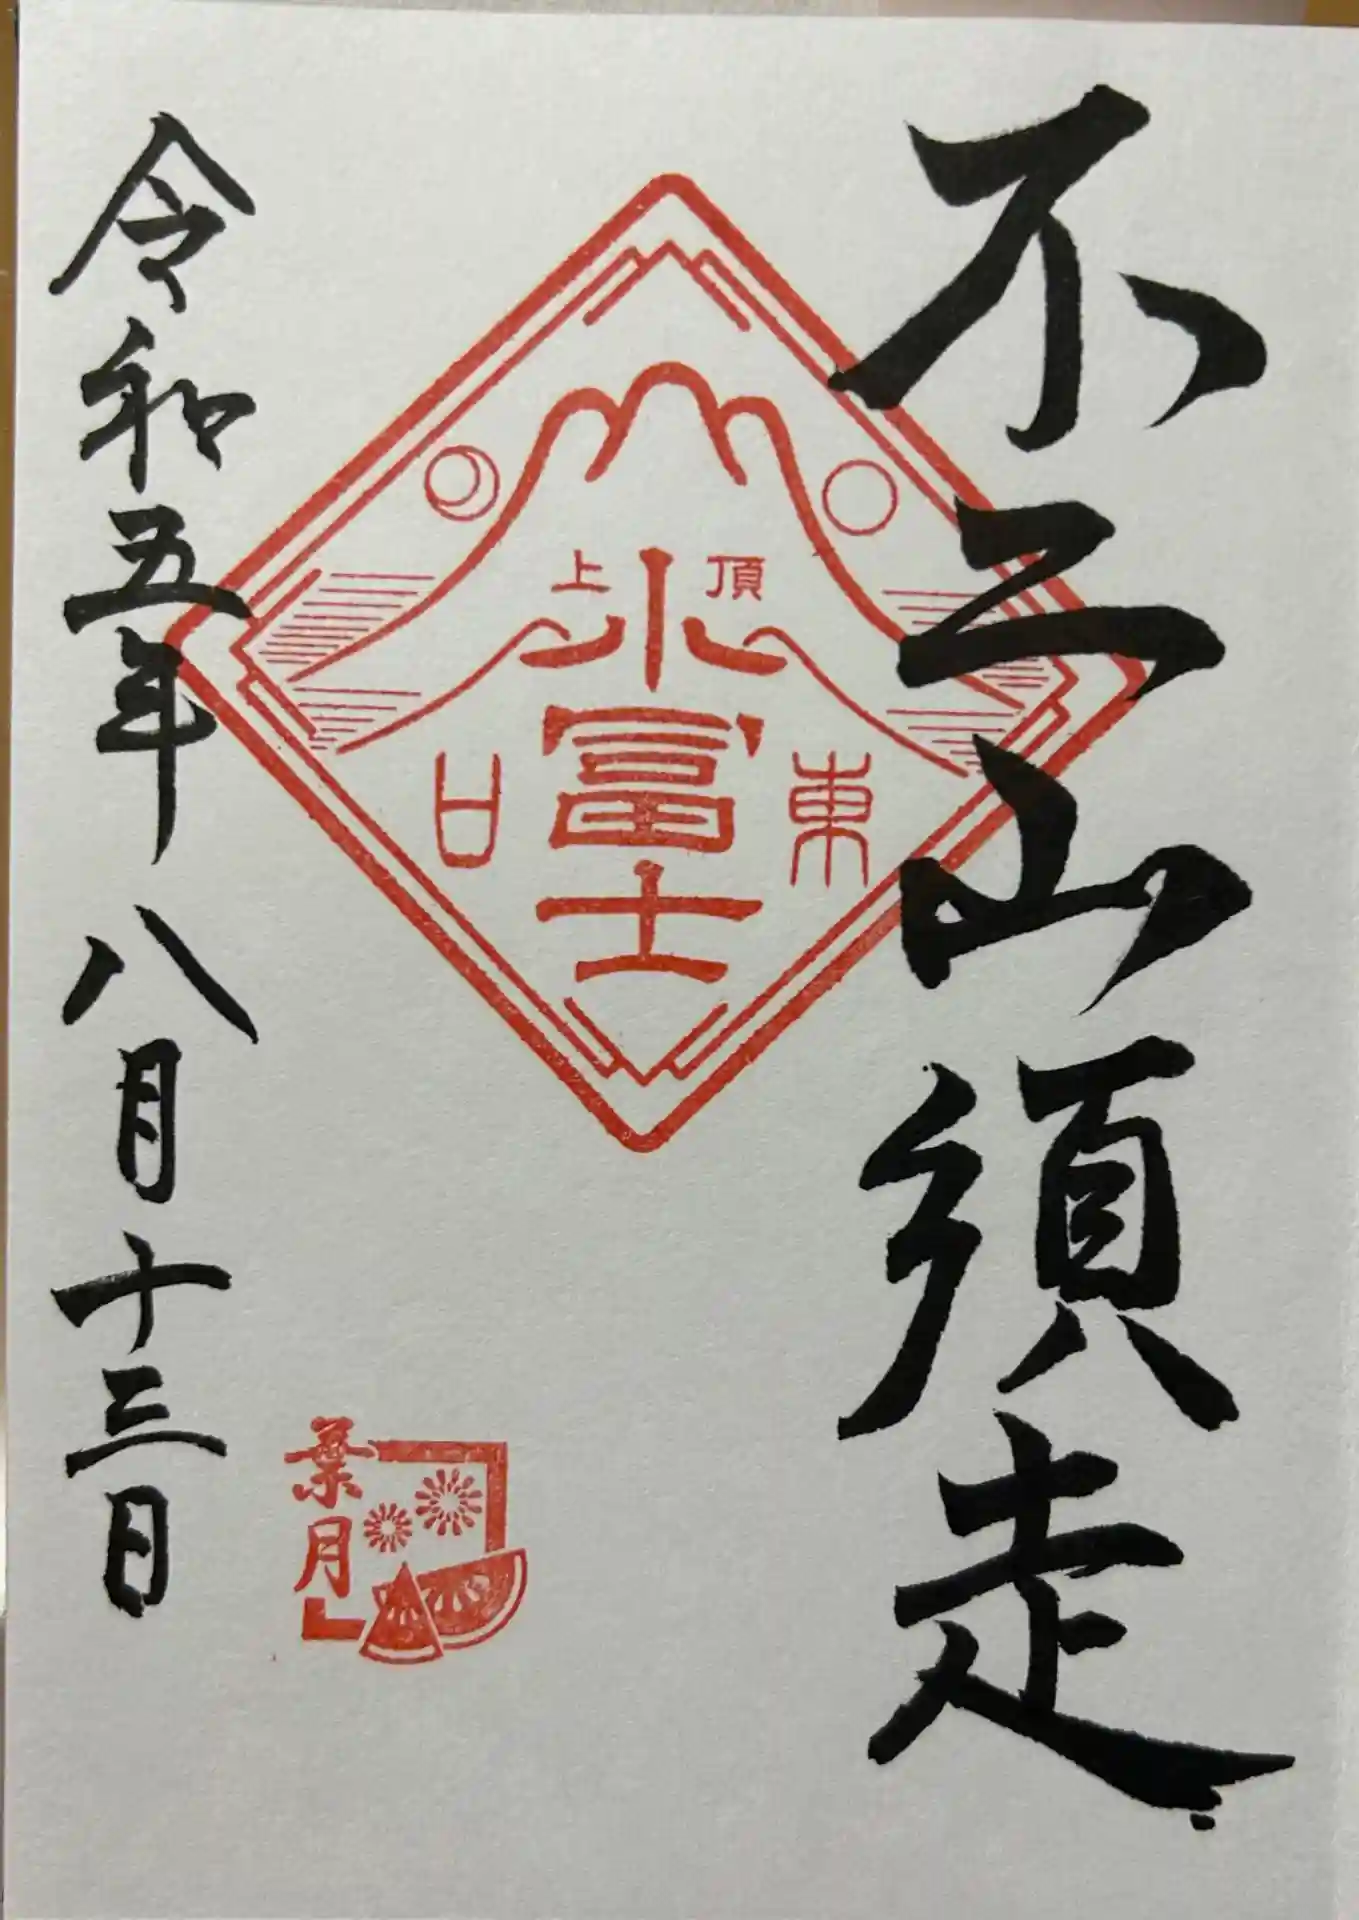 不二山須走
頂上
東口
小富士
葉月
令和五年八月十三日